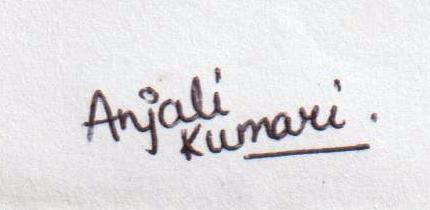 Anjali
Kumari.